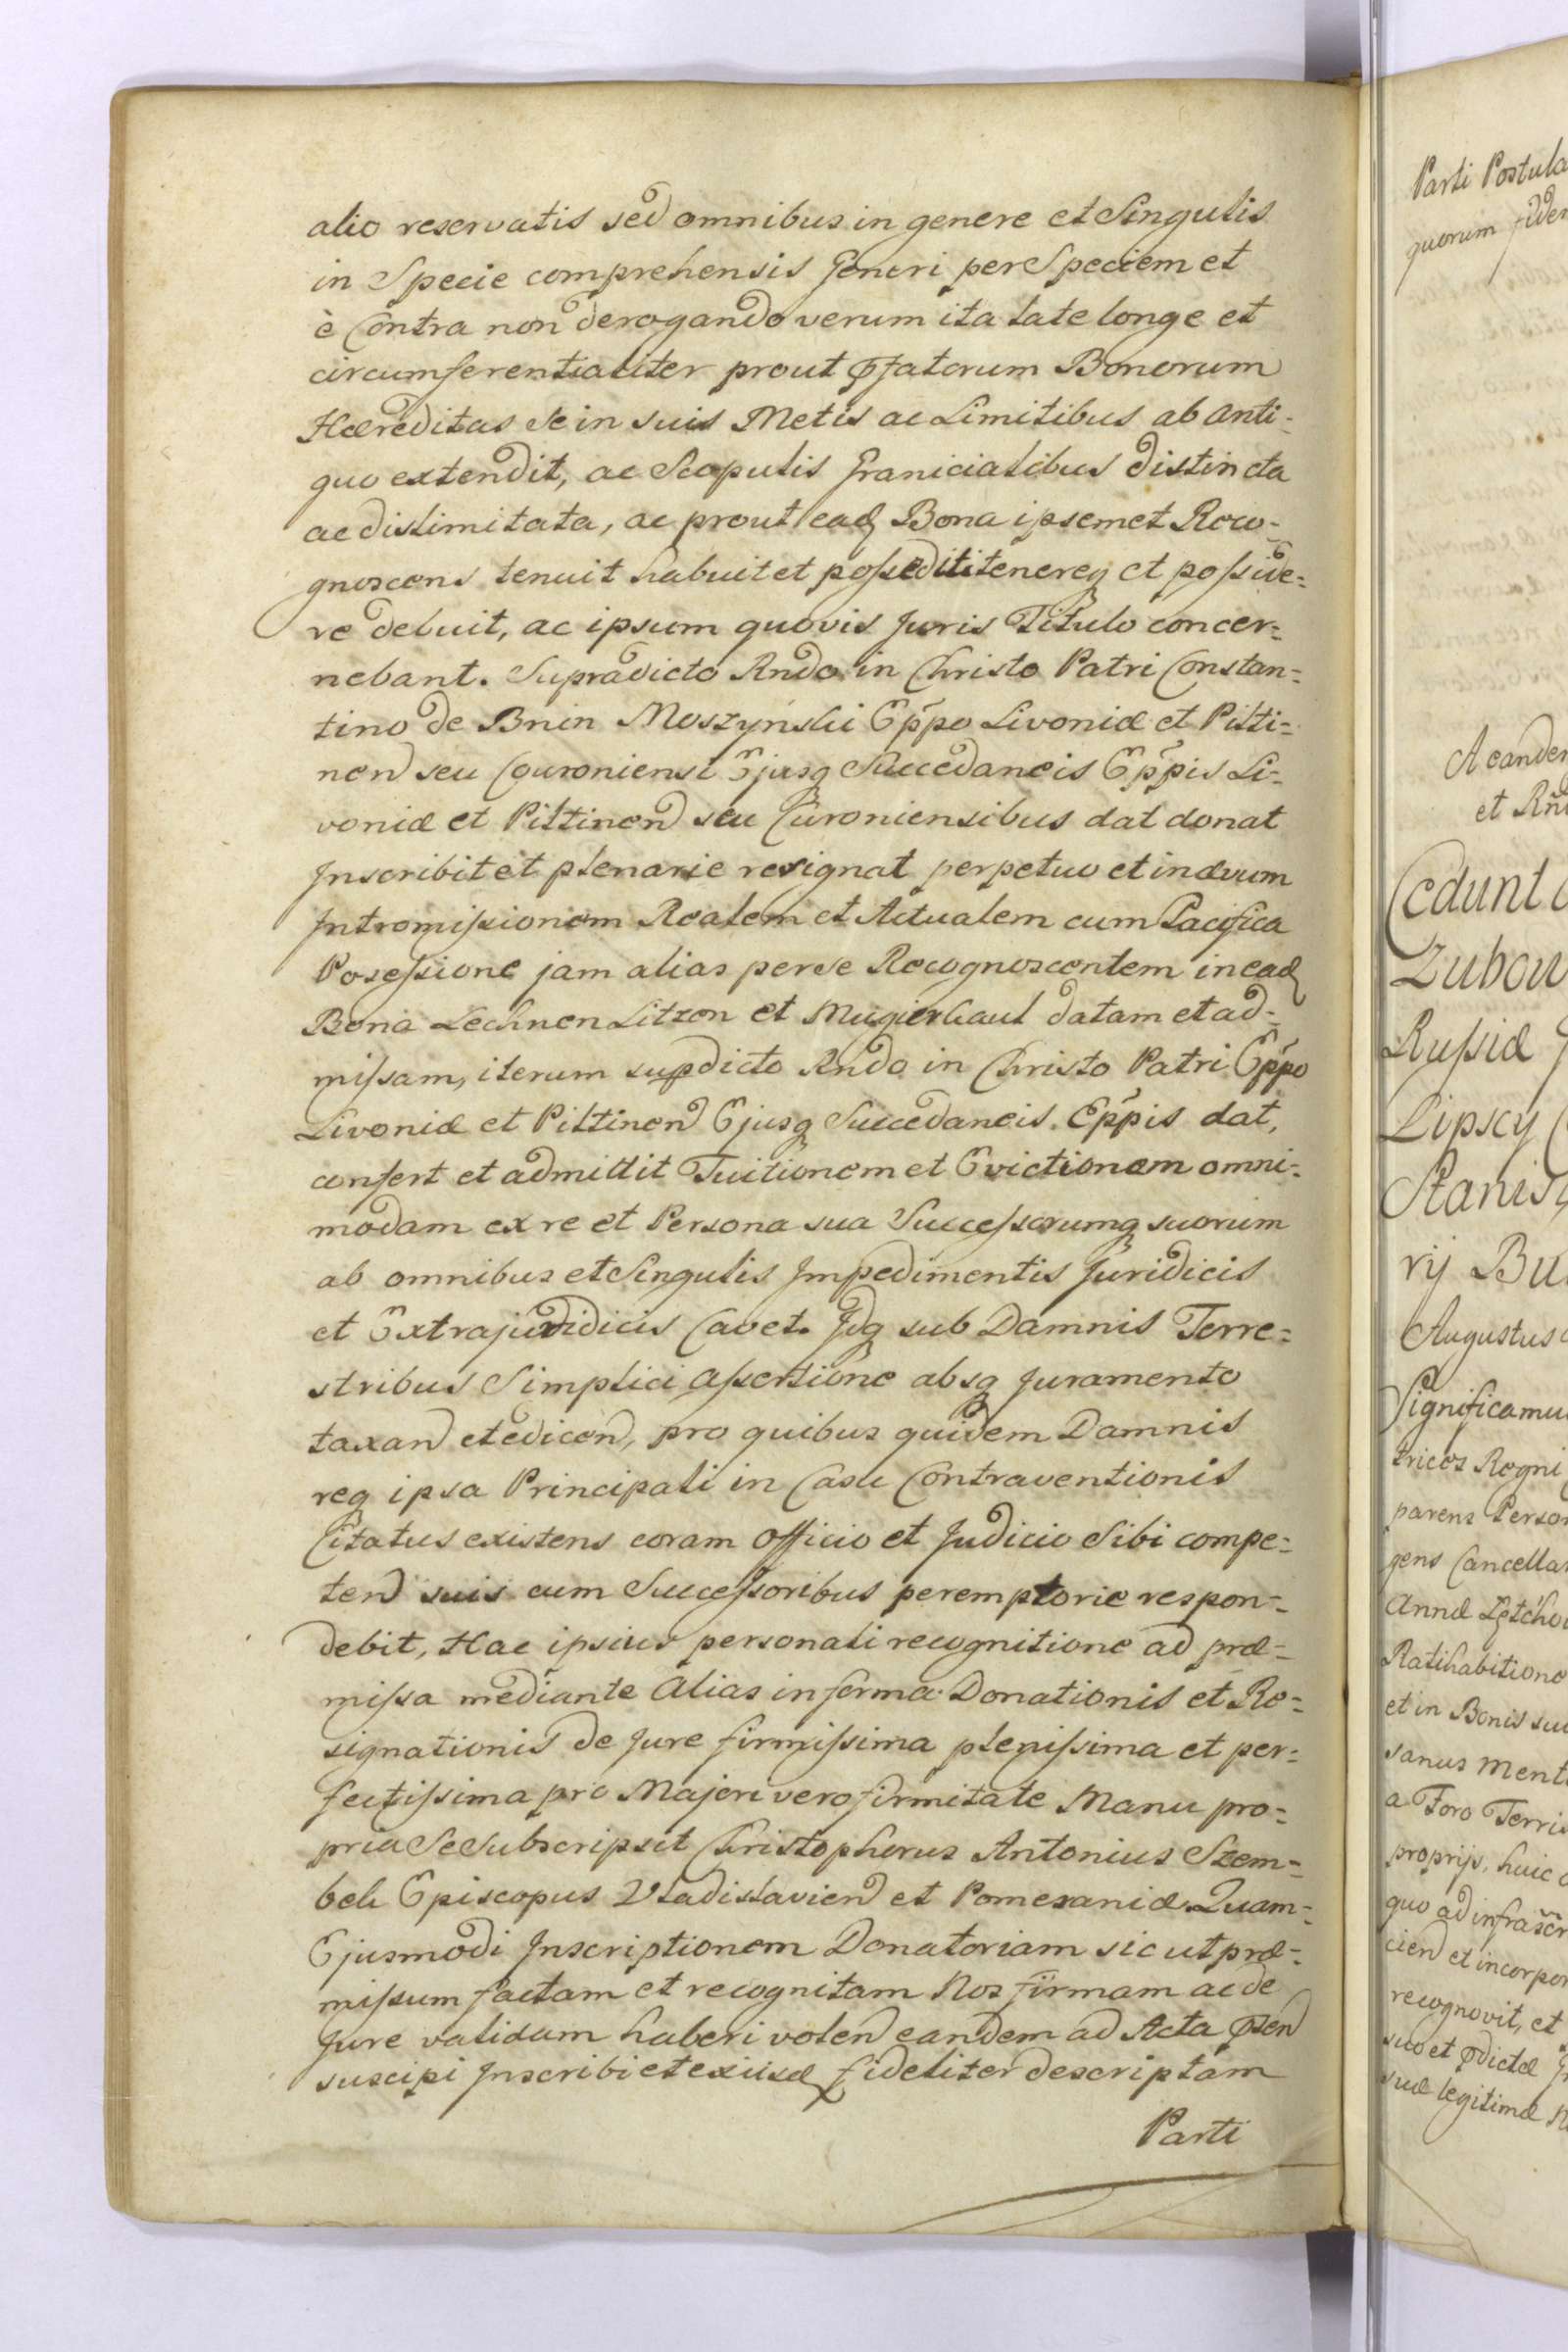 alio reservatis sed omnibus in genere et Singulis
in Specie comprehensis Generi per Speciem et
è Contra non derogando verum ita late longe et
circumferentialiter prout pfatorum Bonorum
Hæreditas se in suis Metis ac Limitibus ab anti-
quo extendit, ac Scopulis Granicialibus distincta
ac dislimitata, ac prout ead Bona ipsemet Reco-
gnoscens tenuit habuit et possedit tenereq et posside-
re debuit, ac ipsum quovis Juris Titulo concer-
nebant. Supradicto Rndo in Christo Patri Constan-
tino de Bnin Moszyński Eppo Livoniæ et Pilti-
nen seu Curoniensi Ejusq Succedaneis Eppis Li-
voniæ et Piltinen seu Curoniensibus dat donat
Inscribit et plenarie resignat perpetuo et in ævum
Intromissionem Realem et Actualem cum Pacifica
Posessione jam alias per se Recognoscentem in ead
Bona Lechnen Litzen et Mugierhaul datam et ad-
missam, iterum supdicto Rndo in Christo Patri Eppo
Livoniæ et Piltinen Ejusq Succedaneis Eppis dat,
confert et admittit Tuitionem et Evictionem omni-
modam ex re et Persona sua Successorumq suorum
ab omnibus et Singulis Impedimentis Juridicis
et Extrajuridicis Cavet. Idq sub Damnis Terre-
stribus Simplici assertione absq Juramento
taxan et edicen, pro quibus quidem Damnis
req ipsa Principali in Casu Contraventionis
Citatus existens coram officio et Judicio Sibi compe-
ten suis cum Successoribus peremptorie respon-
debit, Hac ipsius personali recognitione ad præ-
missa mediante alias in forma Donationis et Re-
signationis de Jure firmissima plenissima et per-
fectissima pro Majori vero firmitate Manu pro-
pria Se Subscripsit Christophorus Antonius Szem-
bek Episcopus Vladislavien et Pomeraniæ Quam-
Ejusmodi Inscriptionem Donatoriam sic ut præ-
missum factam et recognitam Nos firmam ac de
Jure validam haberi volen eandem ad Acta psen
suscipi Inscribi et ex iisd fideliter descriptam
Parti
Parti Postula
quorum fidem
A eandem
et Rñ
Cedunt
Zubow
Russiæ
Lipscy
Stanis
rij Bu
Augustus
Significamu
trices Regni
parens Person
gens Cancellar
Annæ
Ratihabitione
et in Bonis su
sanus Ment
a Foro Terris
proprijs, huic
quo ad infrascr
cien et incorpor
recognovit, et
suo et pdictæ
suæ legitimæ